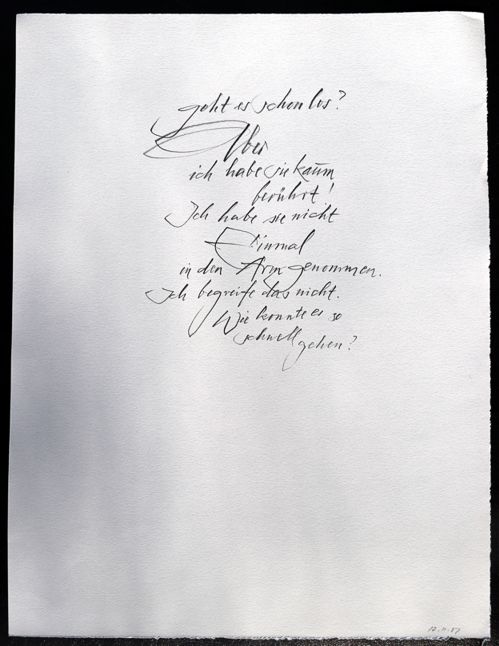 geht es schon los?
Aber
ich habe sie kaum
berührt!
Ich habe sie nicht
Einmal
in den Arm genommen.
Ich begreife das nicht.
Wie konnte es so
schnell
gehen?